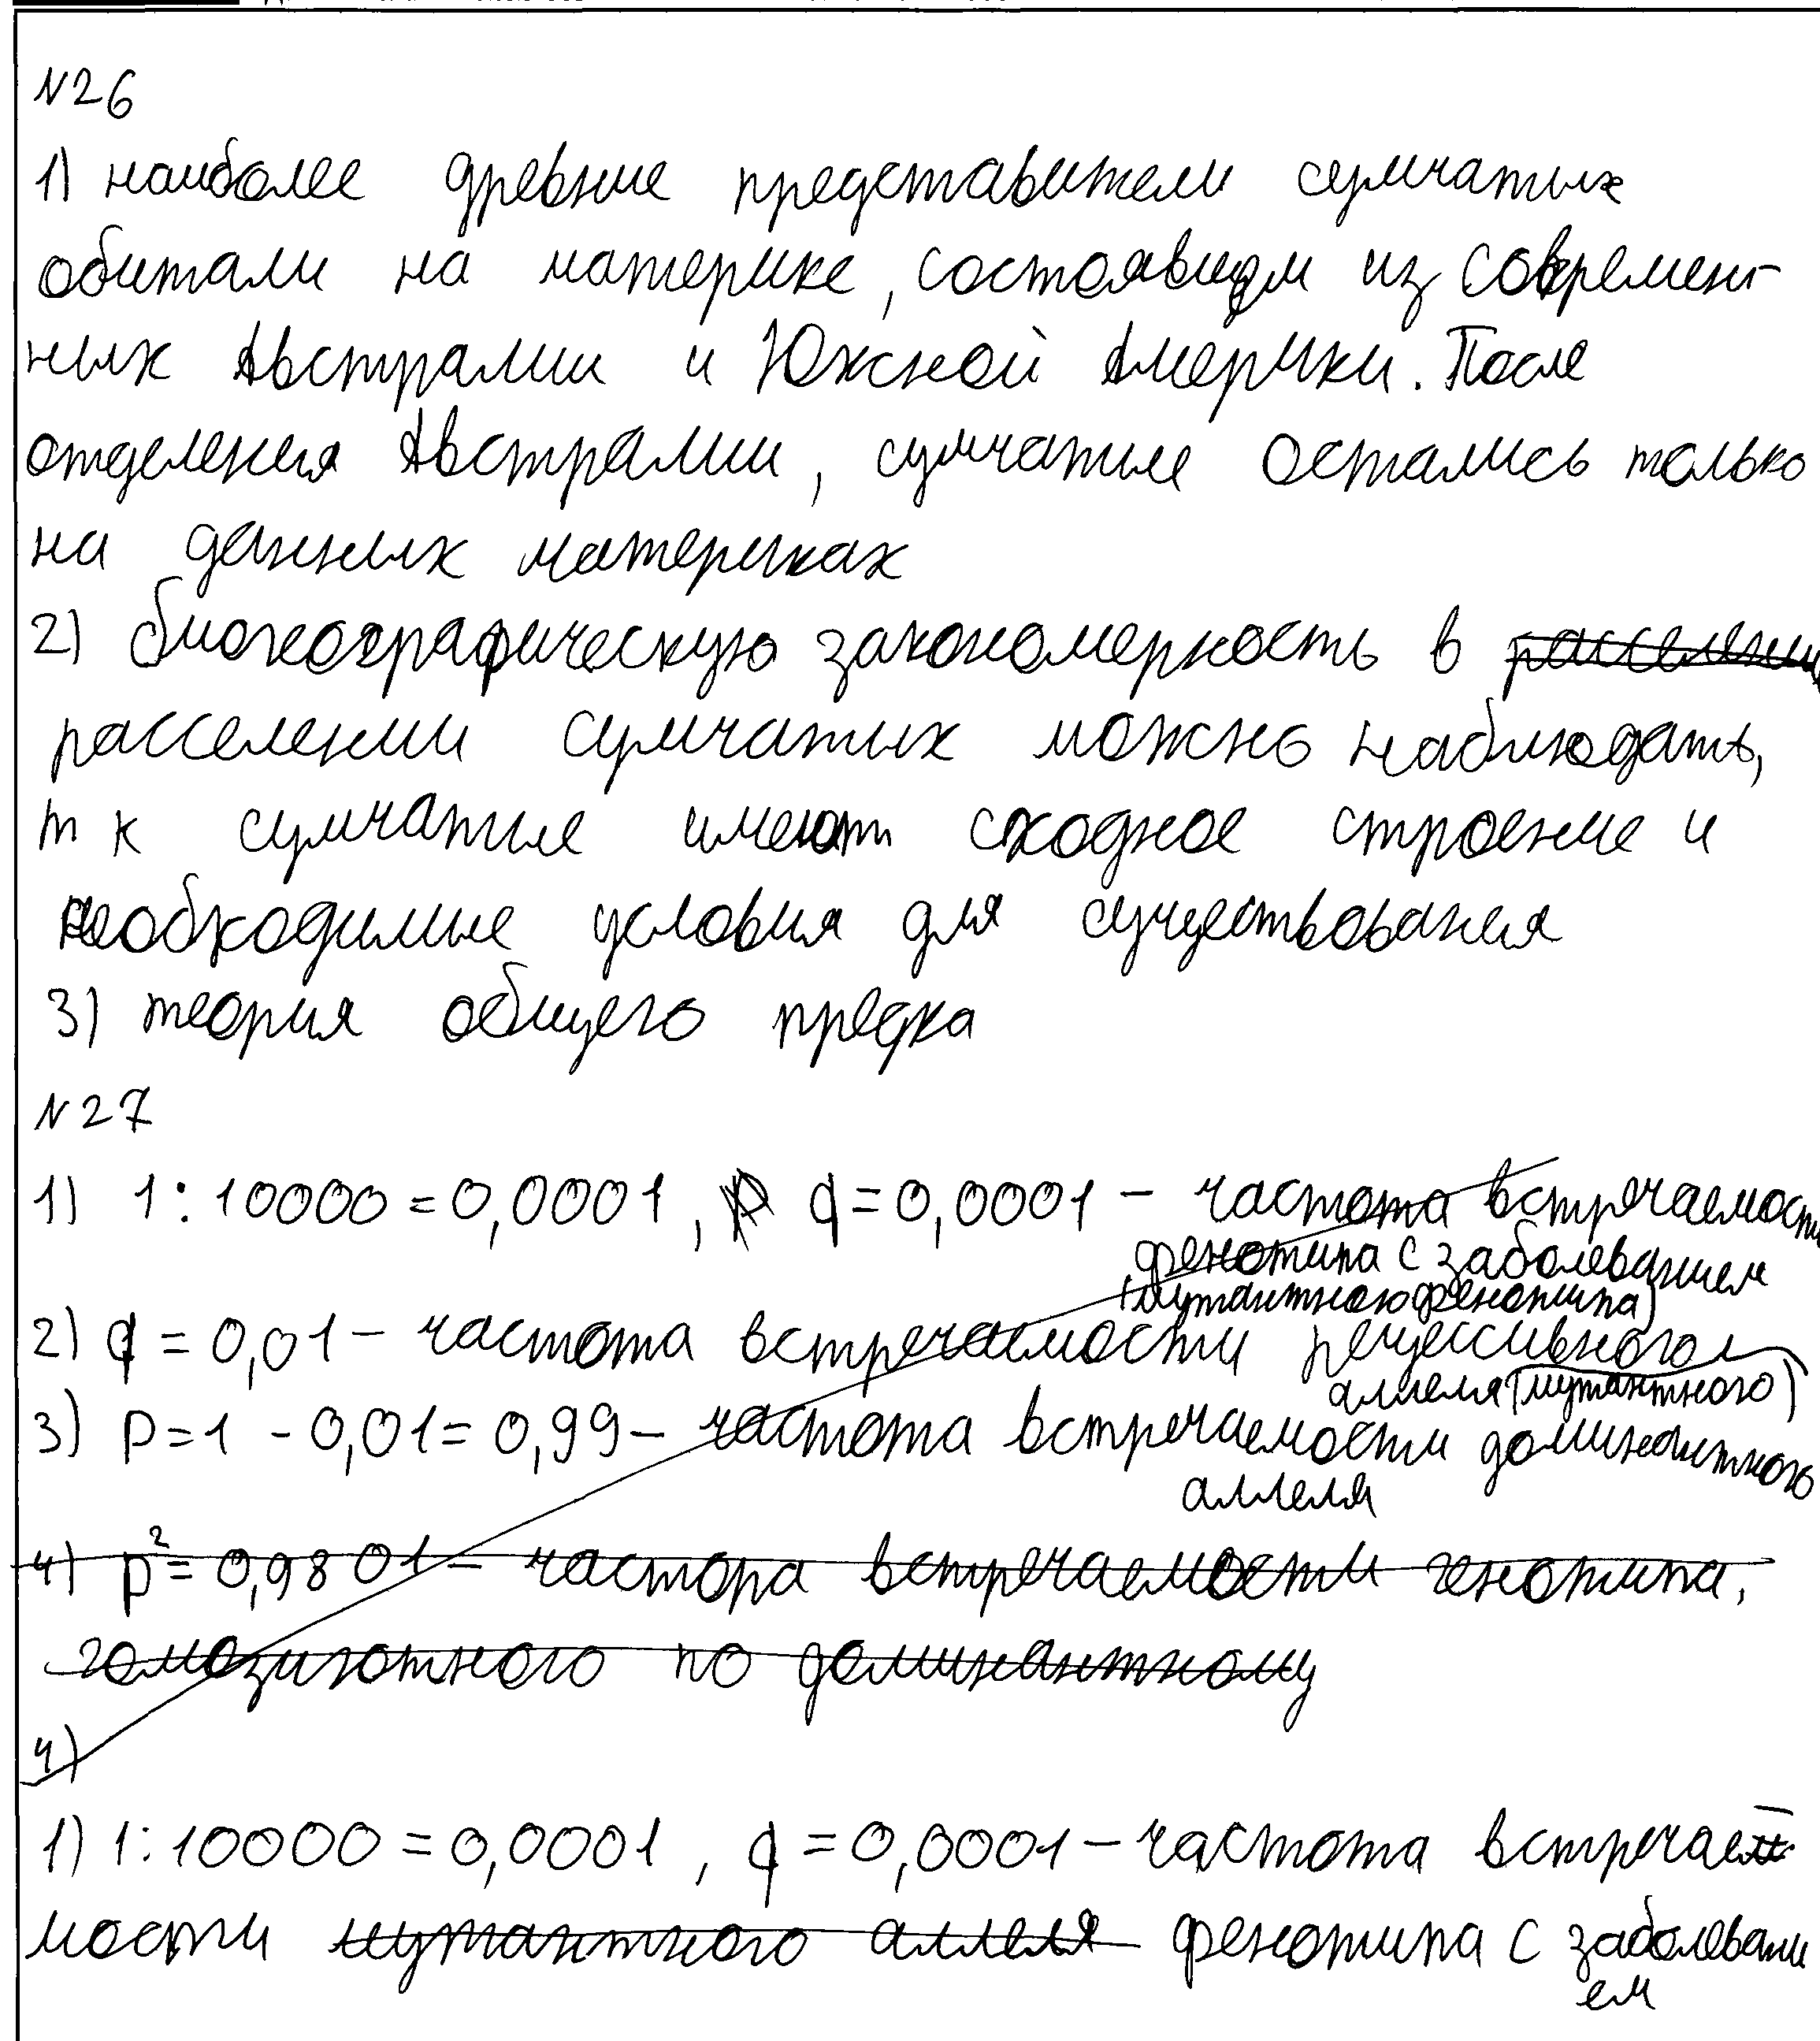 N26
1) наиболее древние представители сумчатых
обитали на материке, состоявшем из современ-
ных Австралии и Южной Америки. После
отделения Австралии, сумчатые остались только
на данных материках
2) биогеографическую закономерность в расселении
расселении сумчатых можно наблюдать,
т к сумчатые имеют сходное строение и
необходимые условия для существования
3) теория общего предка
N27
1) 1:10000=0,0001, q=0,0001 – частота встречаемости
фенотипа с заболеванием
(мутантного фенотипа)
2) q = 0,01 – частота встречаемости рецессивного
аллеля (мутантного)
3) p=1 - 0,01= 0,99 – частота встречаемости доминантного
аллеля
4) p²= 0,9801 – частора встречаемости генотипа,
гомозиготного по доминантному
4)
1) 1:10000 = 0,0001, q = 0,0001 – частота встречае-
мости мутантного аллеля фенотипа с заболевани
ем